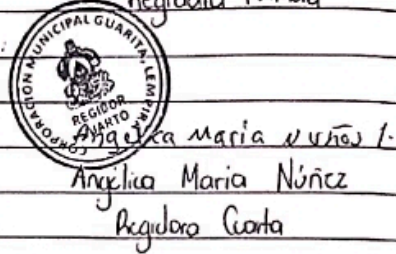 CORPORACION MUNICIPAL GUARITA, LEMPIRA
REGIDOR
CUARTO
Angelica Maria Nuñes
Angélica Maria Núñez
Regidora Cuarta